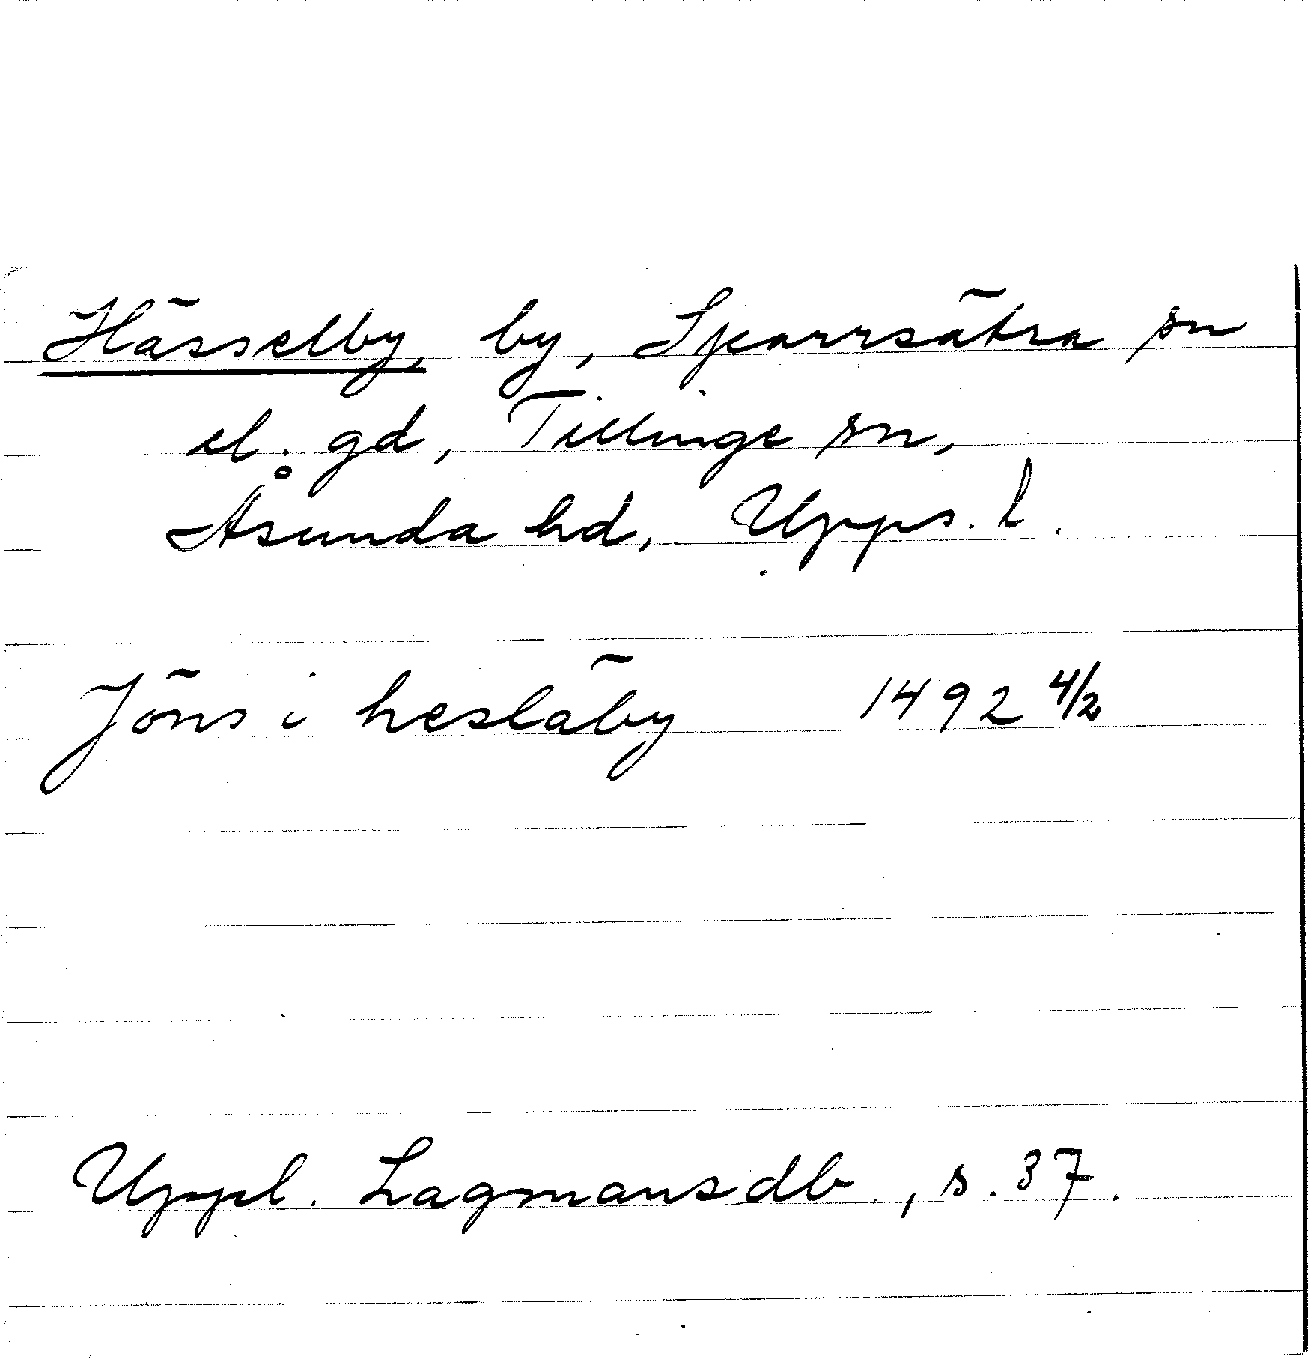 Hässelby, by, Sparrsätra sn
el. gd, Tillinge sn,
Åsunda hd, Upps. l.
Jöns i hesläby 1492 4/2
Uppl. Lagmansdb., s. 37.